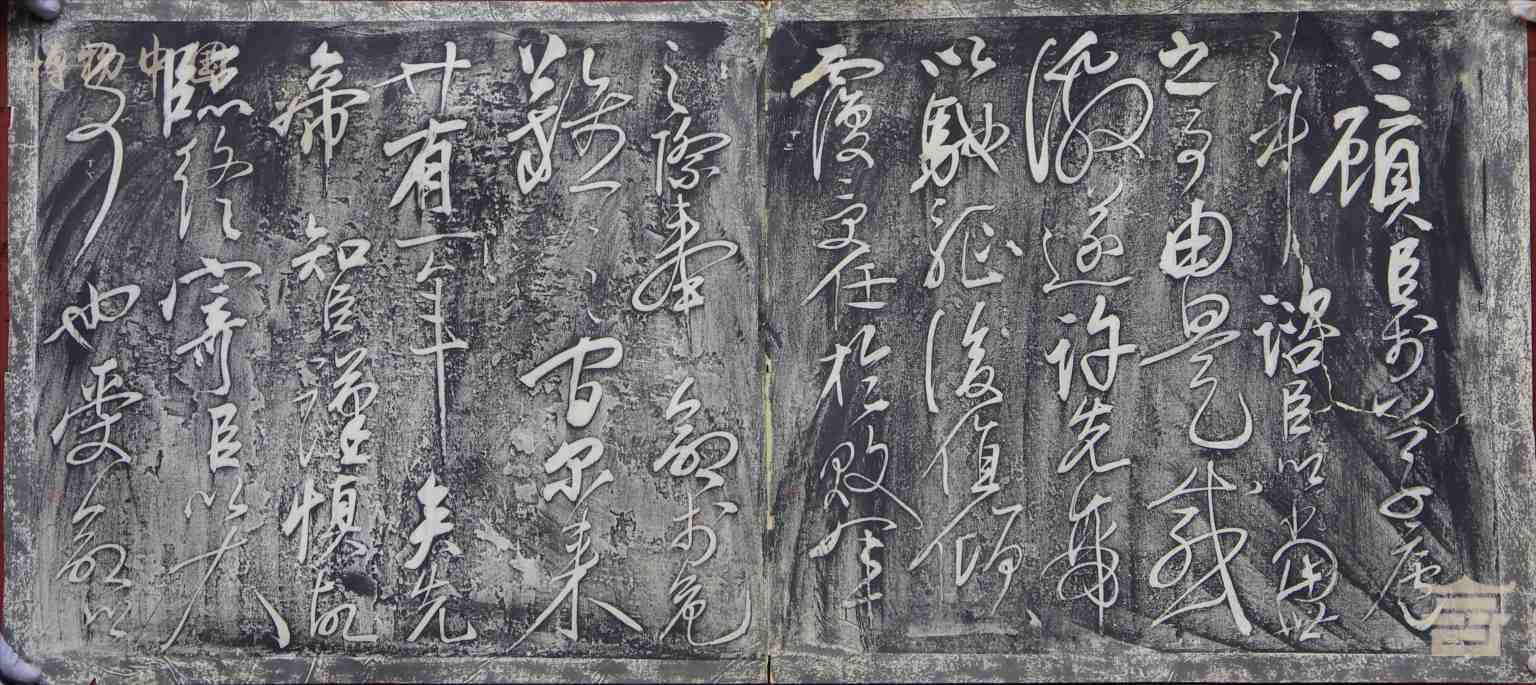 三顧臣於草廬
之中諮臣以當世
之事由是感
激遂許先帝
以馳驅後值傾
覆受任於敗軍
之際奉命於危
難之間尔來
廿有一年矣先
帝知臣謹慎故
臨終寄臣以大
事也受命以